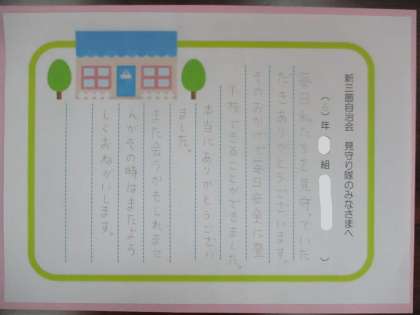 新三国自治会 見守り隊のみなさまへ
(6)年 組 )
毎日私たちを見守っていた
だきありがとうございます。
そのおかげで毎日安全に登
下校できることができました。
本当にありがとうござい
ました。
また会うかもしれませ
んがその時はまたよろ
しくおねがいします。